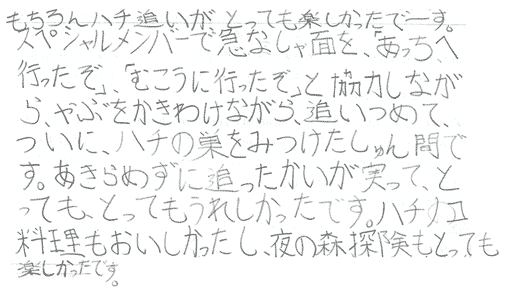 もちろんハチ追いがとっても楽しかったでーす。
スペシャルメンバーで急なしゃ面を、「あっち、へ
行ったぞ」、「むこうに行ったぞ」と協力しなが
ら、やぶをかきわけながら、追いつめて、
ついに、ハチの巣をみつけたしゅん間で
す。あきらめずに追ったかいが実って、と
っても、とってもうれしかったです。ハチノコ
料理もおいしかったし、夜の森探険もとっても
楽しかったです。